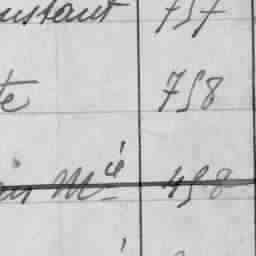 nstant 757
te 758
in Mié 458